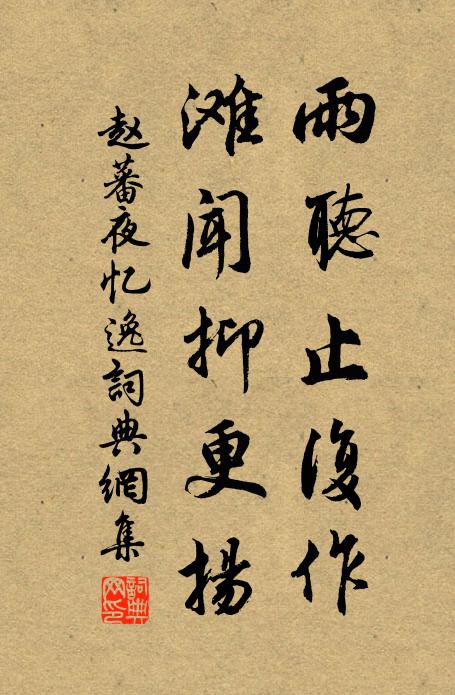 雨聽止復作
滩聞抑更揚
赵蕃夜忆逸詞典網集
詞典网印